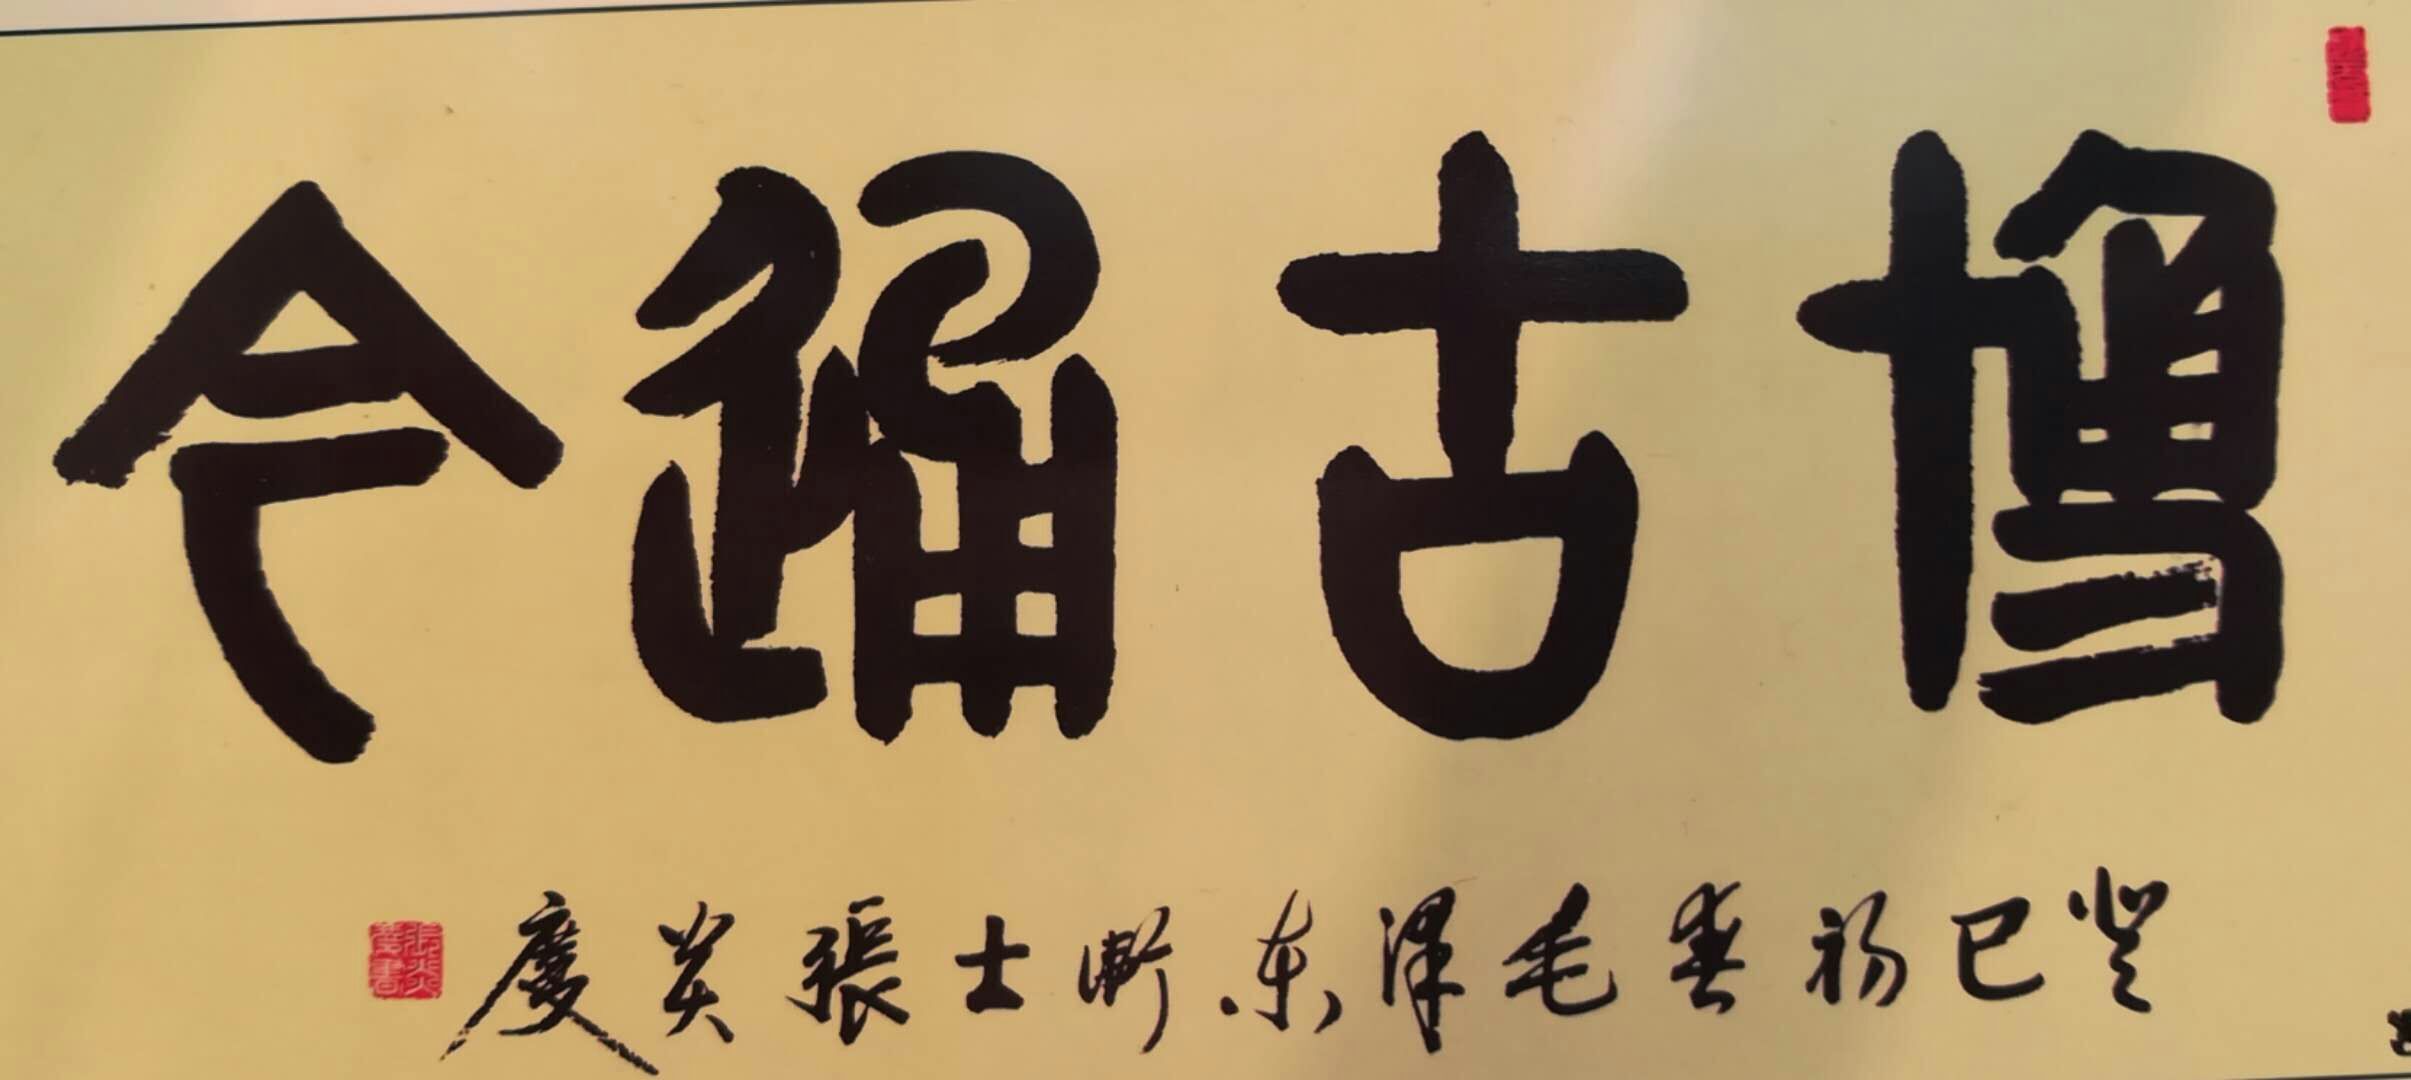 博古通今
癸巳初春毛泽东衛士張芝慶